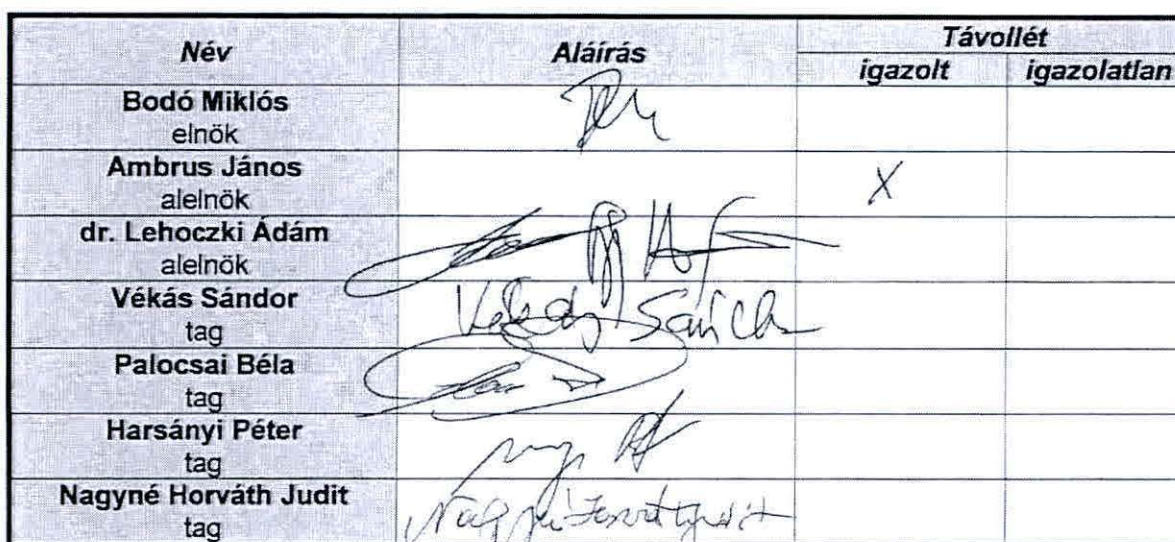 Név Aláírás Távollét
igazolt igazolatlan
Bodó Miklós
elnök
Ambrus János
alelnök X
dr. Lehoczki Ádám
alelnök
Vékás Sándor
tag
Palocsai Béla
tag
Harsányi Péter
tag
Nagyné Horváth Judit Nagyné Horváth Judit
tag